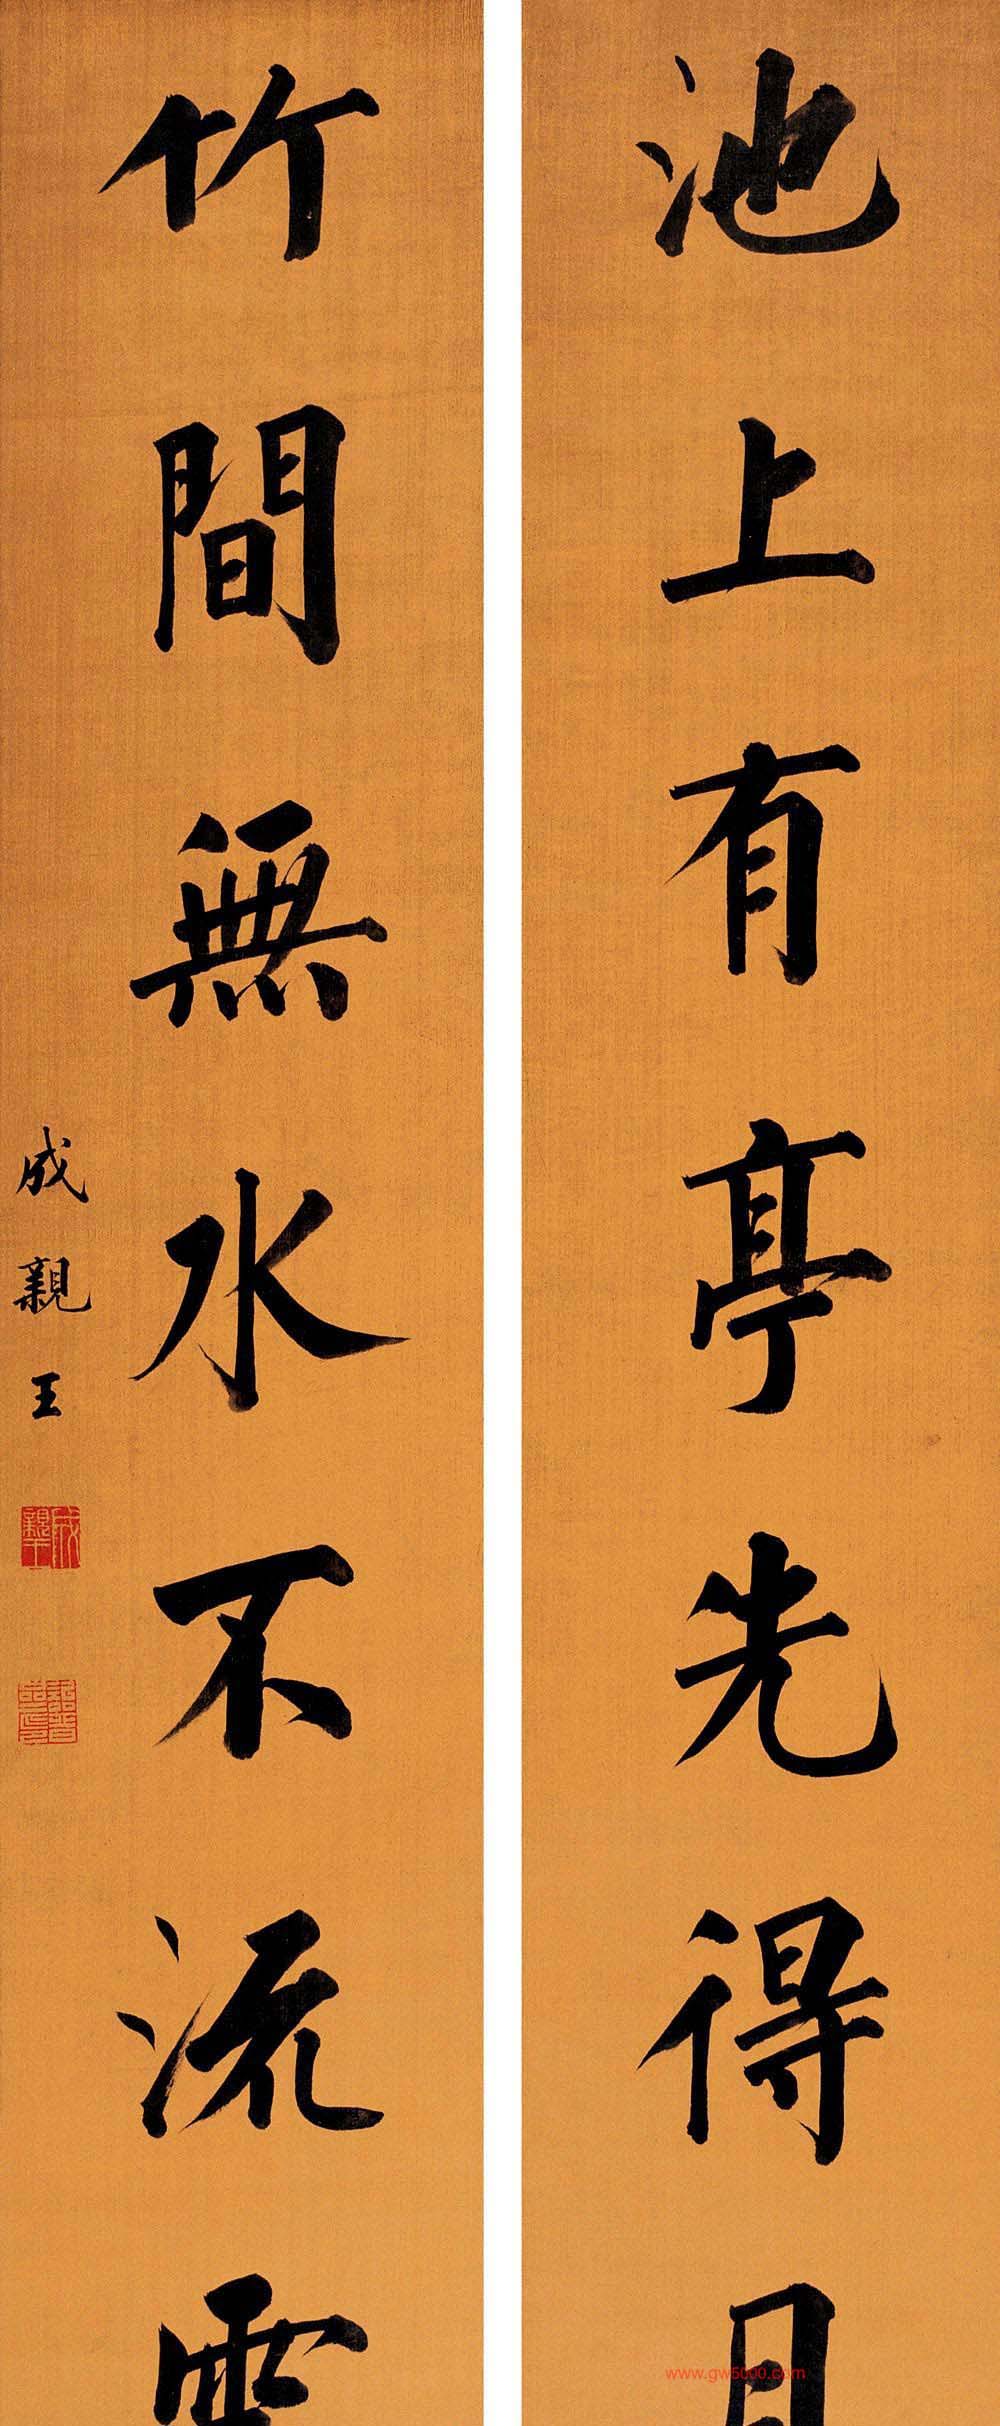 池上有亭先得月
竹間無水不流雲
成親王
成親王
詒晉齋印
www.gw5000.com